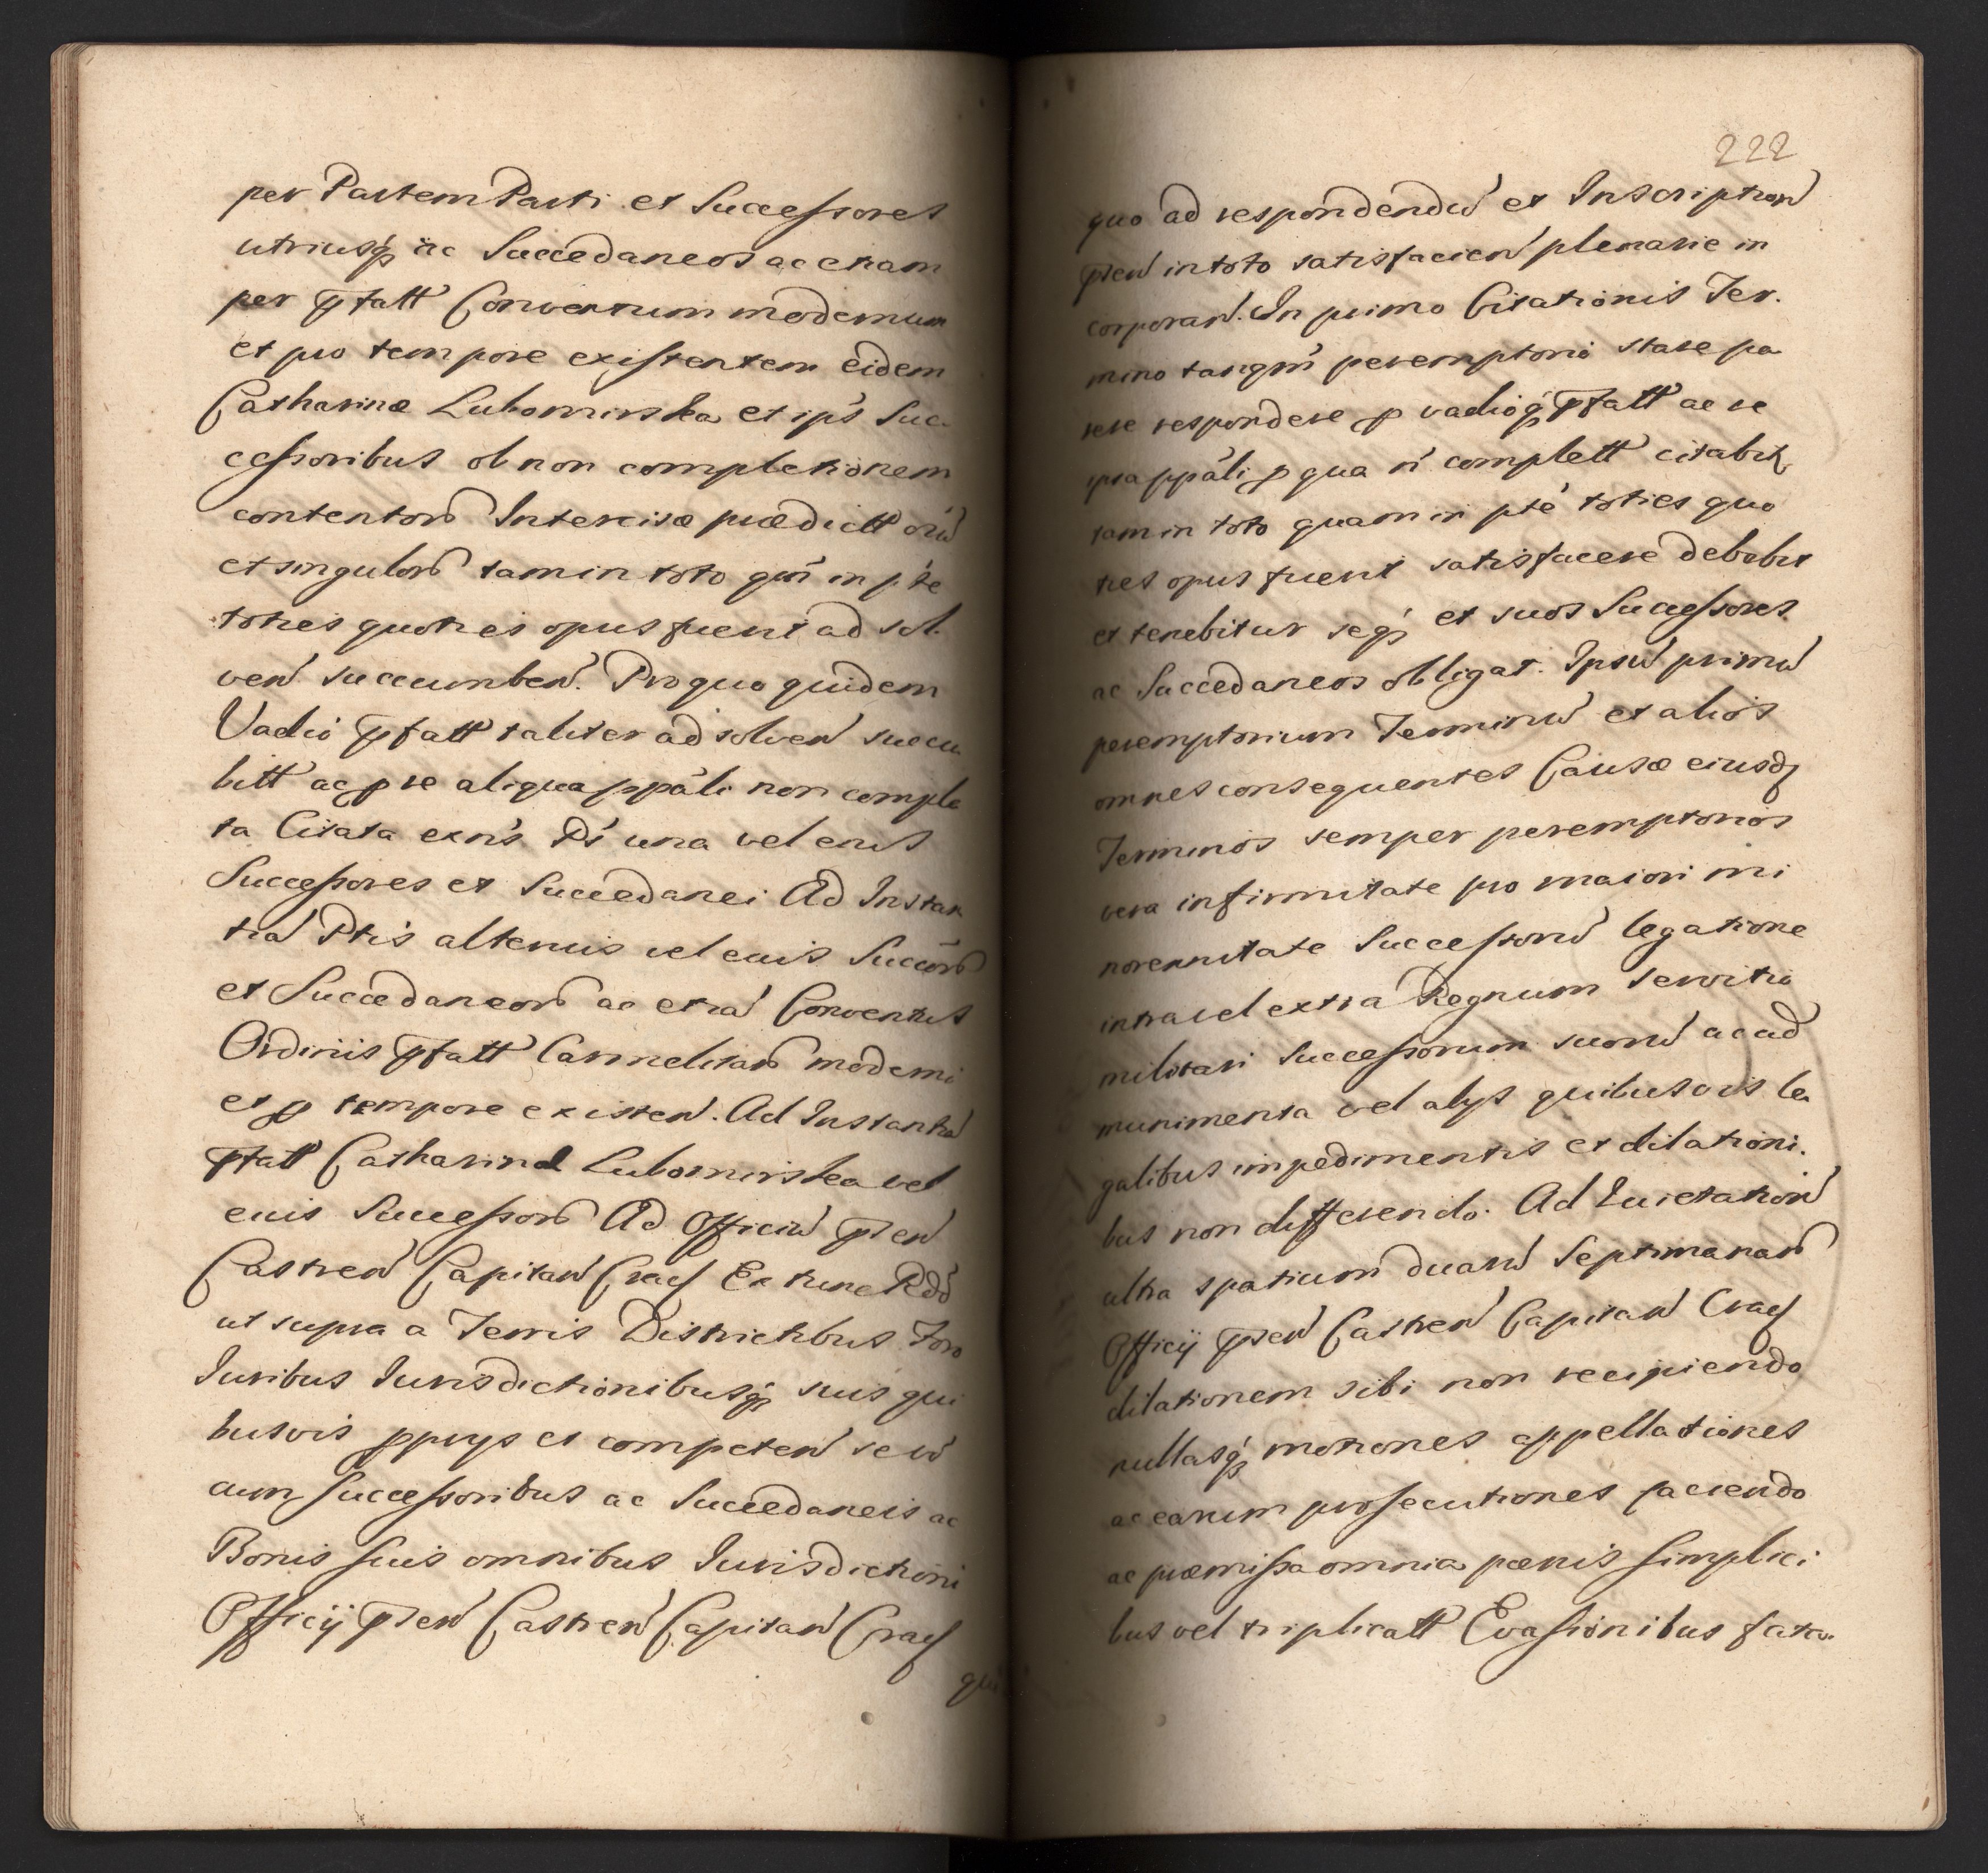 per Partem Parti et Successores
utriusq₃ ac Succedaneos ac etiam
per pfatt Conventum modernum
et pro tempore existentem eidem
Catharinæ Lubomirska et ips Suc-
cessoribus ob non completionem
contentorũ Intercisæ prædictt oĩũ
et singulorũ tam in toto qm̃ in pte
toties quoties opus fuerit ad sol-
ven succumben. Pro quo quidem
Vadio pfatt taliter ad solven succu
bitt ac p re aliqua ppali non comple
ta Citata exns Ps una vel eius
Successores et Succedanei Ad Instan
tiã Ptis alterius vel eius Succorũ
et Succedaneorũ ac etiã Conventus
Ordinis pfatt Carmelitarũ moderni
et p tempore existen. Ad Instantiã
pfatt Catharinæ Lubomirska vel
euis Successorũ Ad Officiũ pñen
Castren Capitan Crac Ex tunc Rdd
ut supra a Terris Districtibus Foro
Iuribus Iurisdictionibusq₃ suis qui
busvis pprys et competen seũ
cum Successoribus ac Succedaneis ac
Bonis suis omnibus Iurisdictioni
Officij pñen Castren Capitan Crac
qui
222
quo ad respondendũ et Inscription
pñen in toto satisfacien plenarie in
corporan. In primo Citationis Ter-
mino tanqm̃ peremptorio stare pa
rere respondere p vadioq₃ pfatt ac re
ipsa ppali p qua ñ complett citabit
tam in toto quam in pte toties quo
ties opus fuerit satisfacere debebit
et tenebitur seq₃ et suos Successores
ac Succedaneos obligat. Ipsũ primũ
peremptorium Terminũ et alios
omnes consequentes Causæ eiusd
Terminos semper peremptorios
vera infirmitate pro maiori mi
norennitate Successorũ legatione
intra vel extra Regnum servitio
militari Successorum suorũ ac ad
munimenta vel alys quibusvis le
galibus impedimentis et dilationi-
bus non differendo. Ad Quietation
ultra spatium duarũ Septimanarũ
Officij pñen Castren Capitan Crac
dilationem sibi non recipiendo
nullasq₃ motiones appellationes
ac earum prosecutiones faciendo
ac præmissa omnia pœnis simplici
bus vel triplicatt Evasionibus fata-